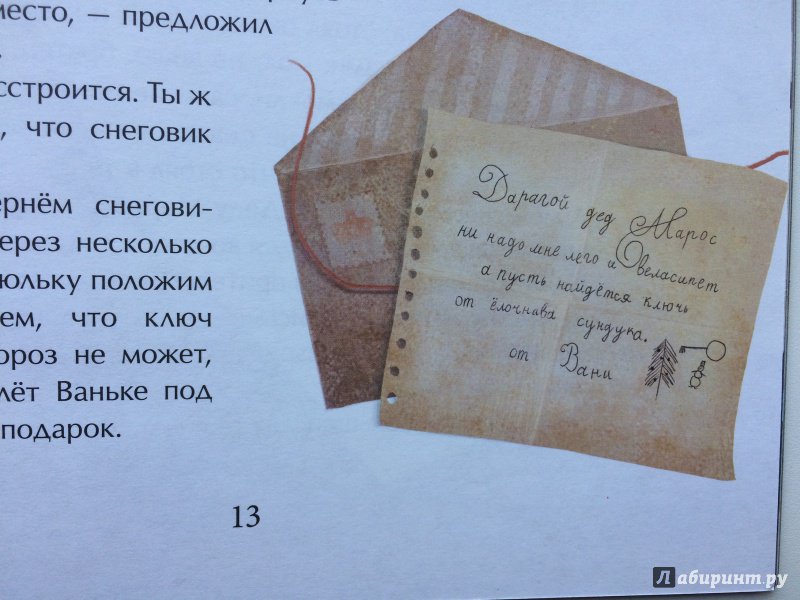 место, — предложил
сстроится. Ты ж
, что снеговик
ернём снегови-
ерез несколько
юльку положим
ем, что ключ
ороз не может,
лёт Ваньке под
подарок.
Дарагой дед Марос
ни надо мне лего и веласипет
а пусть найдётся ключь
от ёлочнава сундука.
от Вани
13
Лабиринт.ру